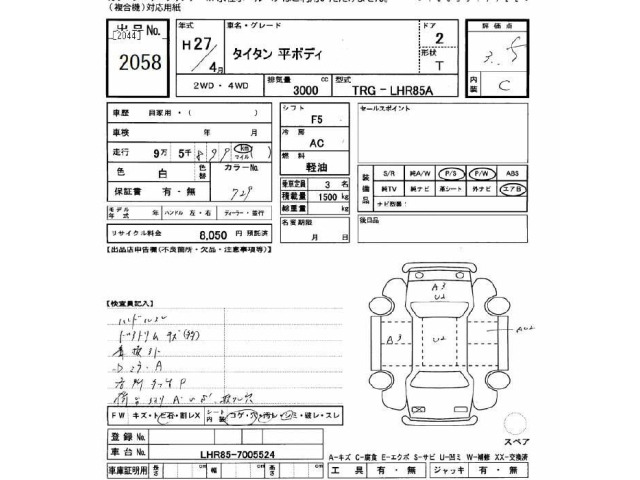 (複合機)対応用紙
出品号 No.
[2044]
2058
年式
H27/4月
車名・グレード
タイタン 平ボディ
ドア
2
形状
T
評価点
3.5
内装
C
2WD・4WD
排気量
3000 cc
型式
TRG - LHR85A
車歴 自家用・( )
車検 年 月
走行 9万 5千 899 km マイル( )
色 白 色替 カラーNo.
保証書 有・無 729
モデル年式 年 ハンドル 左・右 ディーラー・並行
リサイクル料金 8,050 円 預託済
シフト
F5
冷房
AC
燃料
軽油
乗車定員 3 名
積載量 1500 kg
総重量 kg
名変期限
月 日
セールスポイント
装備品
S/R 純A/W P/S P/W ABS
純TV 純ナビ 革シート 外ナビ エアB
ナビ機番:
後日品
【出品店申告欄(不良箇所・欠品・注意事項等)】
【検査員記入】
A3
U2
A3
U2
AU2
FW キズ・トビ石・割レX シート内装 コゲ・穴・汚レ・シミ・破レ・スレ
登録 No.
車台 No. LHR85-7005524
車庫証明用 長さ cm 幅 cm 高さ cm
スペア
A-キズ C-腐食 E-エクボ S-サビ U-凹ミ W-補修 XX-交換済
工具 有・無 ジャッキ 有・無